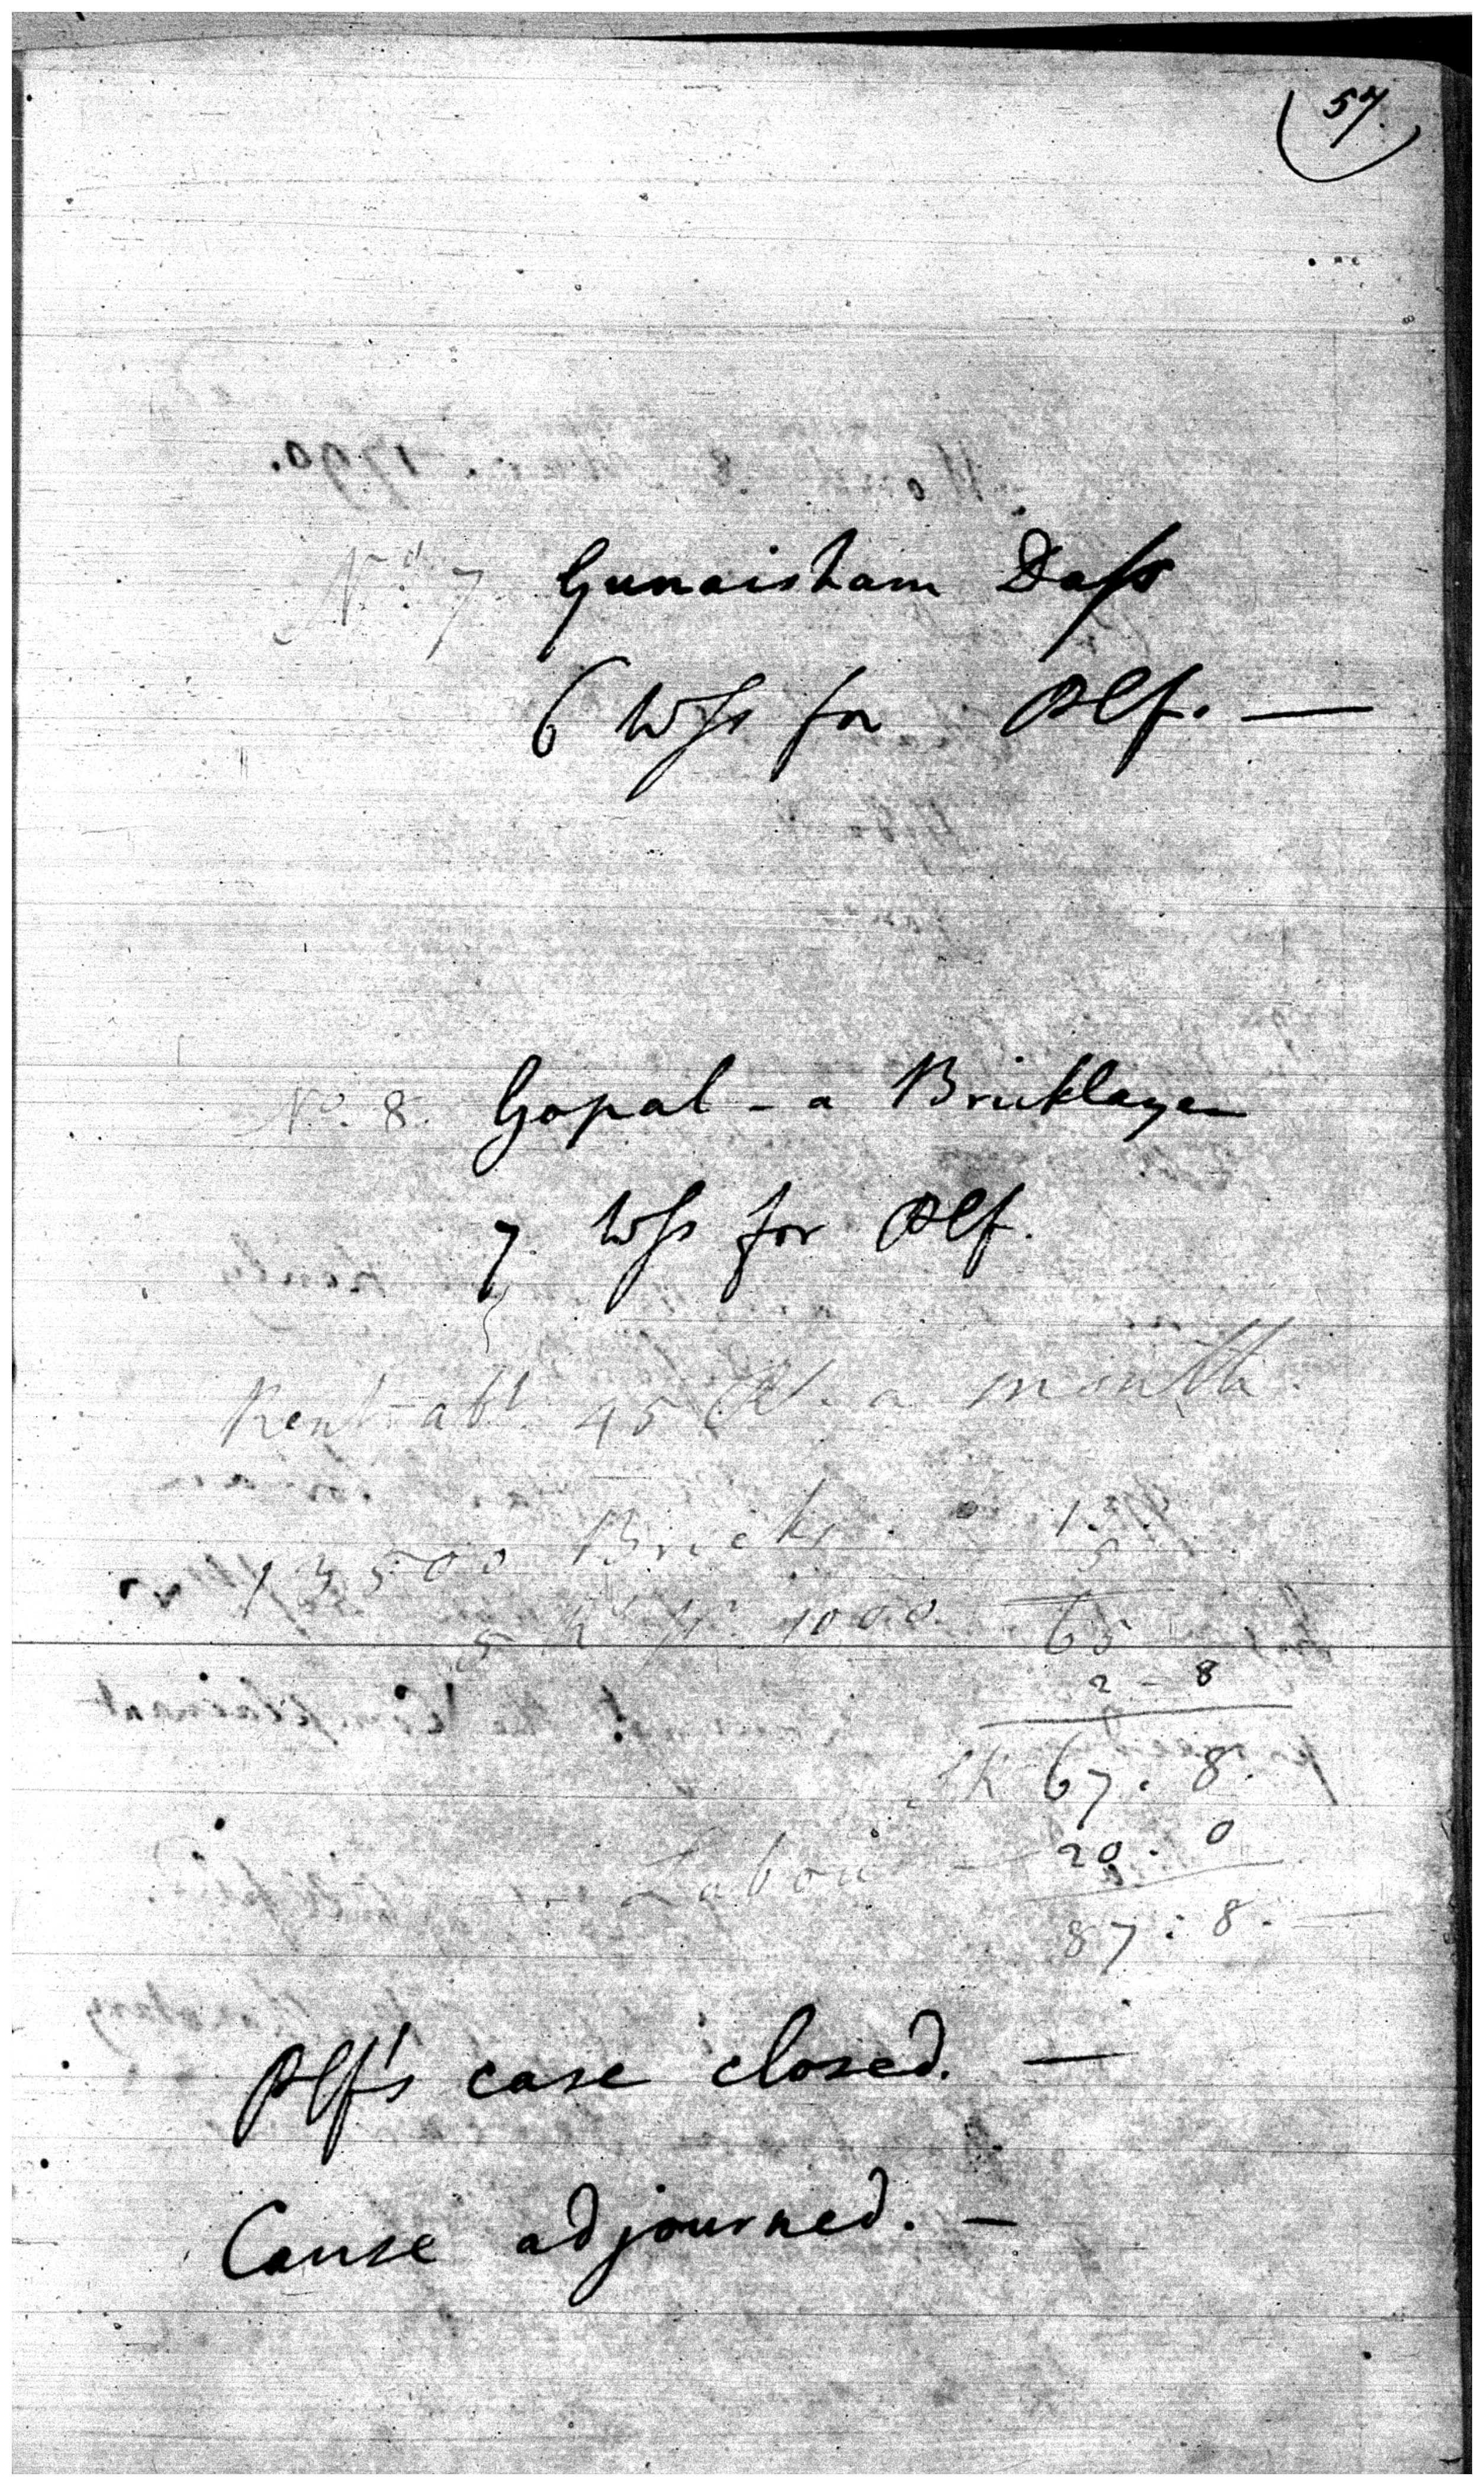 57
No. 7 Gunaisham Dass
6 Wss for Plf. —
No. 8. Gopal - a Bricklayer
7 Wss for Plf.
Rent abt. 45 a month.
13500 Bricks 13
5
5 R pr. 1000. 65
2 - 8
67. 8.
Labour — 20. 0
87. 8. —
Plf's case closed. —
Cause adjourned. —